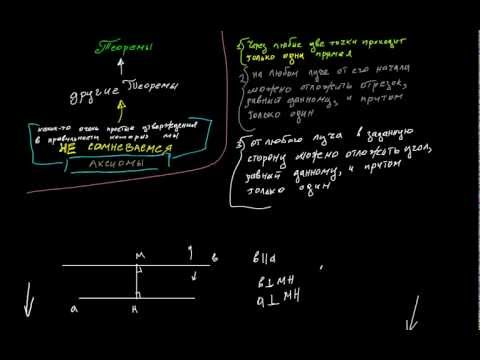 Теоремы
другие Теоремы
какие-то очень простые утверждения
в правильности которых мы
НЕ сомневаемся
Аксиомы
1) Через любые две точки проходит
только одна прямая
2) на любом луче от его начала
можно отложить отрезок,
равный данному, и притом
только один
3) от любого луча в заданную
сторону можно отложить угол,
равный данному, и притом
только один
M
в
a
H
в || a
в ⊥ MH
a ⊥ MH